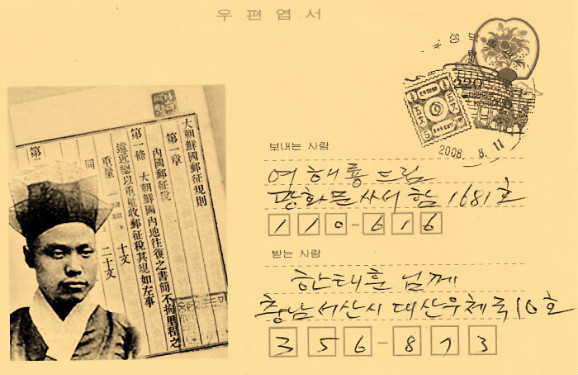 우편엽서
220
2008. 8. 11
보내는 사람
여해룡 드림
광화문 사서함 1681호
110-616
받는 사람
한태훈 님께
충남 서산시 대산우체국 10호
356-873
大朝鮮國郵征規則
第一章
內國郵征稅
第一條 大朝鮮國內地往復之書簡不拘里程之
遠近總以重量政郵征稅其規如左事
重量 十文
同 二十文
第二